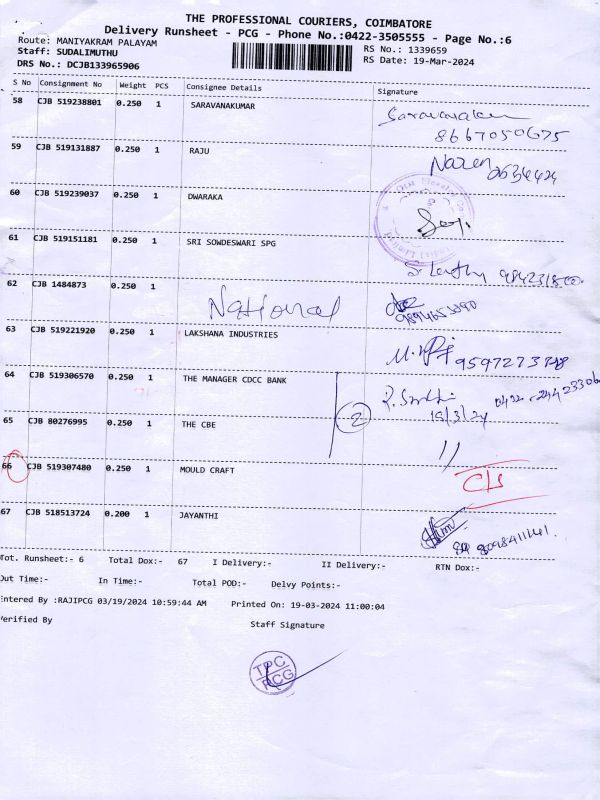 THE PROFESSIONAL COURIERS, COIMBATORE
Delivery Runsheet - PCG - Phone No.:0422-3505555 - Page No.:6
Route: MANIYAKRAM PALAYAM RS No.: 1339659
Staff: SUDALIMUTHU RS Date: 19-Mar-2024
DRS No.: DCJB133965906
S No Consignment No Weight PCS Consignee Details Signature
58 CJB 519238801 0.250 1 SARAVANAKUMAR
8667050675
59 CJB 519131887 0.250 1 RAJU Naren
60 CJB 519239037 0.250 1 DWARAKA
61 CJB 519151181 0.250 1 SRI SOWDESWARI SPG
62 CJB 1484873 0.250 1 National
63 CJB 519221920 0.250 1 LAKSHANA INDUSTRIES
64 CJB 519306570 0.250 1 THE MANAGER CDCC BANK
2 19/3/24
65 CJB 80276995 0.250 1 THE CBE
66 CJB 519307480 0.250 1 MOULD CRAFT
67 CJB 518513724 0.200 1 JAYANTHI
Tot. Runsheet:- 6 Total Dox:- 67 I Delivery:- II Delivery:- RTN Dox:-
Out Time:- In Time:- Total POD:- Delvy Points:-
Entered By :RAJIPCG 03/19/2024 10:59:44 AM Printed On: 19-03-2024 11:00:04
Verified By
Staff Signature
TPC
PCG